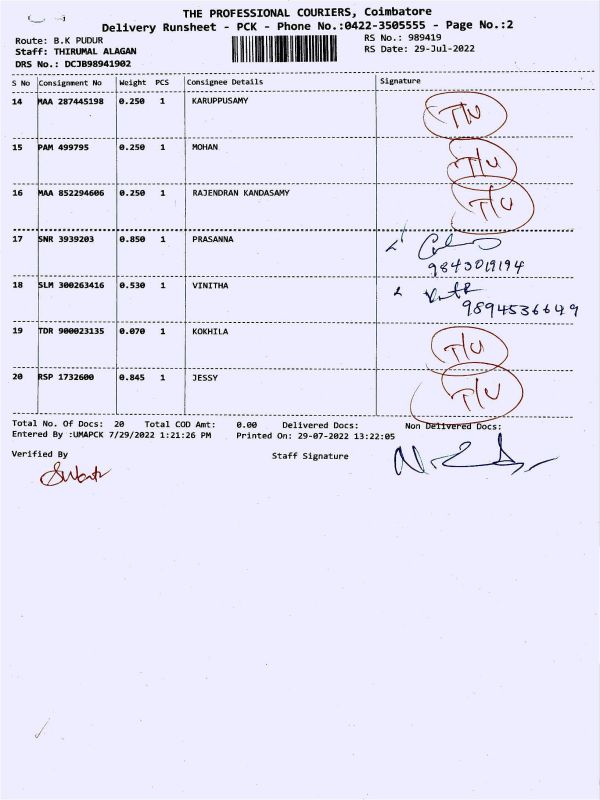 THE PROFESSIONAL COURIERS, Coimbatore
Delivery Runsheet - PCK - Phone No.:0422-3505555 - Page No.:2
Route: B.K PUDUR
RS No.: 989419
Staff: THIRUMAL ALAGAN
RS Date: 29-Jul-2022
DRS No.: DCJB98941902
S No Consignment No Weight PCS Consignee Details Signature
14 MAA 287445198 0.250 1 KARUPPUSAMY T/U
15 PAM 499795 0.250 1 MOHAN T/U
16 MAA 852294606 0.250 1 RAJENDRAN KANDASAMY T/U
17 SNR 3939203 0.850 1 PRASANNA
9843019194
18 SLM 300263416 0.530 1 VINITHA
9894536649
19 TDR 900023135 0.070 1 KOKHILA T/U
20 RSP 1732600 0.845 1 JESSY T/U
Total No. Of Docs: 20 Total COD Amt: 0.00 Delivered Docs: Non Delivered Docs:
Entered By :UMAPCK 7/29/2022 1:21:26 PM Printed On: 29-07-2022 13:22:05
Verified By Staff Signature